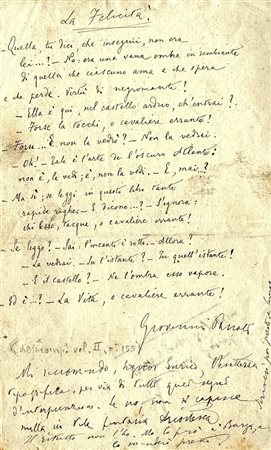 La Felicità!
— Quella, tu dici, che inseguii, non era
lei...? — No: era una vana ombra in sembiante
di quella che ciascuno ama e che spera
e che perde. Virtù di negromante!
— Ella è qui, nel castello arduo, ch'entrai?
Forse la tocchi, o cavaliere errante!
Forse... E non la vedi? — Non la vedrai.
— Oh! — Tale è l'arte de l'oscuro Atlante:
non è, la vedi; è, non la vedi. — E, mai?
— Ma sì; se leggi in questo libro tante
rapide righe. — E dicono...? — S'ignora:
chi lesse, tacque, o cavaliere errante!
— Se leggo? — Sai: l'incanto è rotto. — Allora?
— La vedrai. — In l'istante? — In quell'istante!
— E il castello? — Ne l'ombra esso vapora.
— Ed è...? — La Vita, o cavaliere errante!
Giovanni Pascoli
vol. II
Mi raccomando, signor
tipografica, per via di tutti quei segni
d'interpunzione. Se no non si capisce
nulla